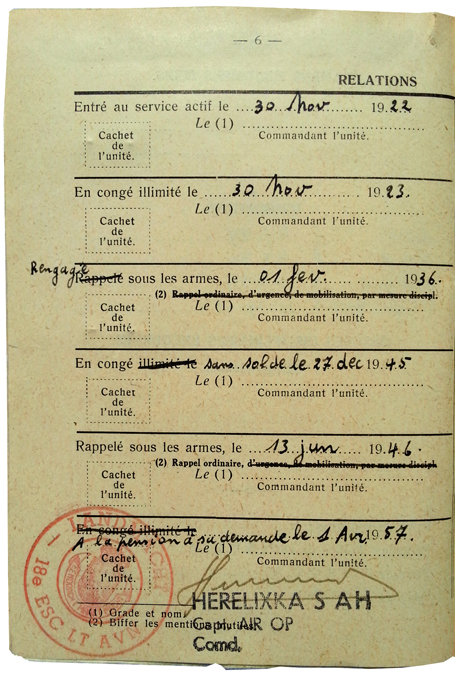 — 6 —
RELATIONS
Entré au service actif le ....30 Nov........ 1922
Le (1) ................................
Commandant l'unité.
Cachet
de
l'unité.
En congé illimité le ......30 Nov........... 1923.
Le (1) ................................
Commandant l'unité.
Cachet
de
l'unité.
Rengagé
Rappelé sous les armes, le ....01 fev....... 1936.
(2) Rappel ordinaire, d'urgence, de mobilisation, par mesure discipl.
Le (1) ................................
Commandant l'unité.
Cachet
de
l'unité.
En congé illimité le sans solde le 27 dec 1945
Le (1) ................................
Commandant l'unité.
Cachet
de
l'unité.
Rappelé sous les armes, le ....13 jun..... 1946.
(2) Rappel ordinaire, d'urgence, de mobilisation, par mesure discipl
Le (1) ................................
Commandant l'unité.
Cachet
de
l'unité.
En congé illimité le
A la pension à sa demande le 1 Avr 1957.
Le (1) ................................
Commandant l'unité.
Cachet
de
l'unité.
18e ESC. LT AVN
HERELIXKA S AH
Capn. AIR OP
Comd.
(1) Grade et nom.
(2) Biffer les mentions inutiles.